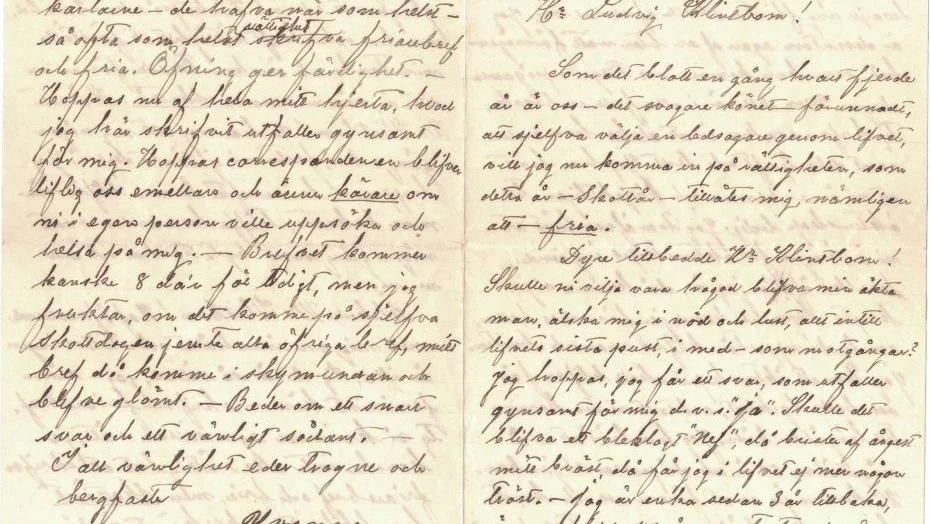 Hr Ludvig Klintbom!
Som det blott en gång hvart fjerde
år är oss – det svagare könet – förunnadt,
att sjelfva välja en ledsagare genom lifvet,
vill jag nu komma in på rättigheten, som
detta år – Skottår – tillåtes mig, nämligen
att – fria.
Dyre tillbedde Hr Klintbom!
Skulle ni vilja vara hågad blifva min äkta
man, älska mig i nöd och lust, allt intill
lifvets sista pust, i med- som motgångar?
Jag hoppas, jag får ett svar, som utfaller
gynsamt för mig d.v.s. "ja". Skulle det
blifva ett bleklagt "Nej", då brister af ångest
mitt bröst då får jag i lifvet ej mer någon
tröst. – Jag är enka sedan 3 år tillbaka,
karlarne – de hafva när som helst –
så ofta som helst rättighet skrifva friarebref
och fria. Öfning ger färdighet. –
Hoppas nu af hela mitt hjerta, hvad
jag här skrifvit utfaller gynsamt
för mig. Hoppas correspondencen blifver
liflig oss emellan och ännu kärare om
ni i egen person ville uppsöka och
helsa på mig. – Brefvet kommer
kanske 8 dar för tidigt, men jag
fruktar, om det komme på sjelfva
Skottdagen jemte alla öfriga bref, mitt
bref då komme i skymundan och
blefve glömt. – Beder om ett snart
svar och ett vänligt sådant. –
I all vänlighet eder trogne och
bergfaste